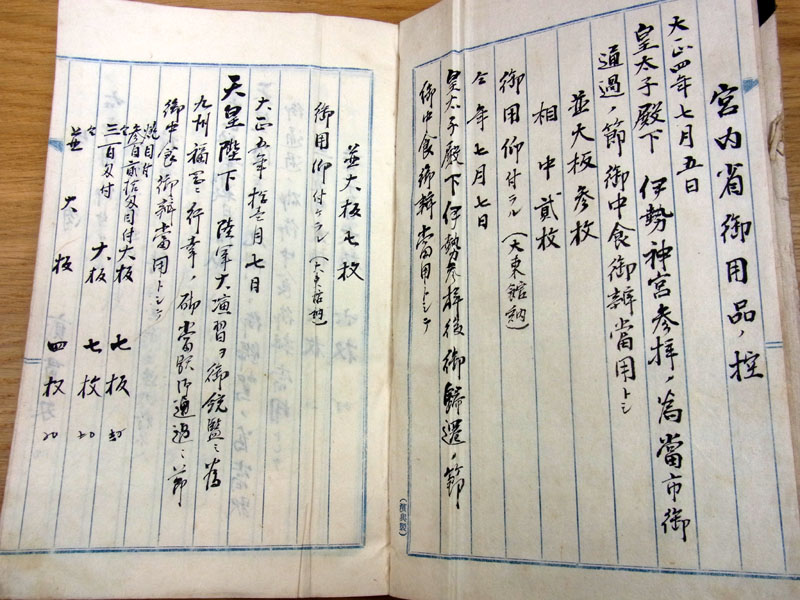 宮内省御用品ノ控
大正四年七月五日
皇太子殿下 伊勢神宮参拝ノ為當市御
通過ノ節御中食御辨當用トシ
並大板参枚
相中貳枚
御用仰付ラル(大東館納)
仝年七月七日
皇太子殿下伊勢参拝後御歸還ノ節
御中食御辨當用トシテ
並大板七枚
御用仰付ケラル(大東館納)
大正五年拾壱月七日
天皇陛下 陸軍大演習ヲ御統監ニ為
九州福岡ニ行幸ノ砌當駅御通過ニ節
御中食御辨當用トシテ
焼目付
参百貳拾匁目付大板 七板
仝三百匁付 大板 七枚
並大板 四枚